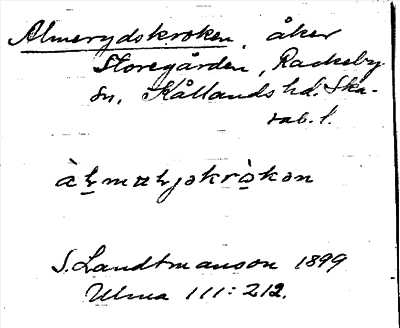 Almerydskroken, åker
Storegården, Rackeby
sn, Kållands hd. Ska-
rab. l.
S. Landtmanson 1899
Ulma 111:212.